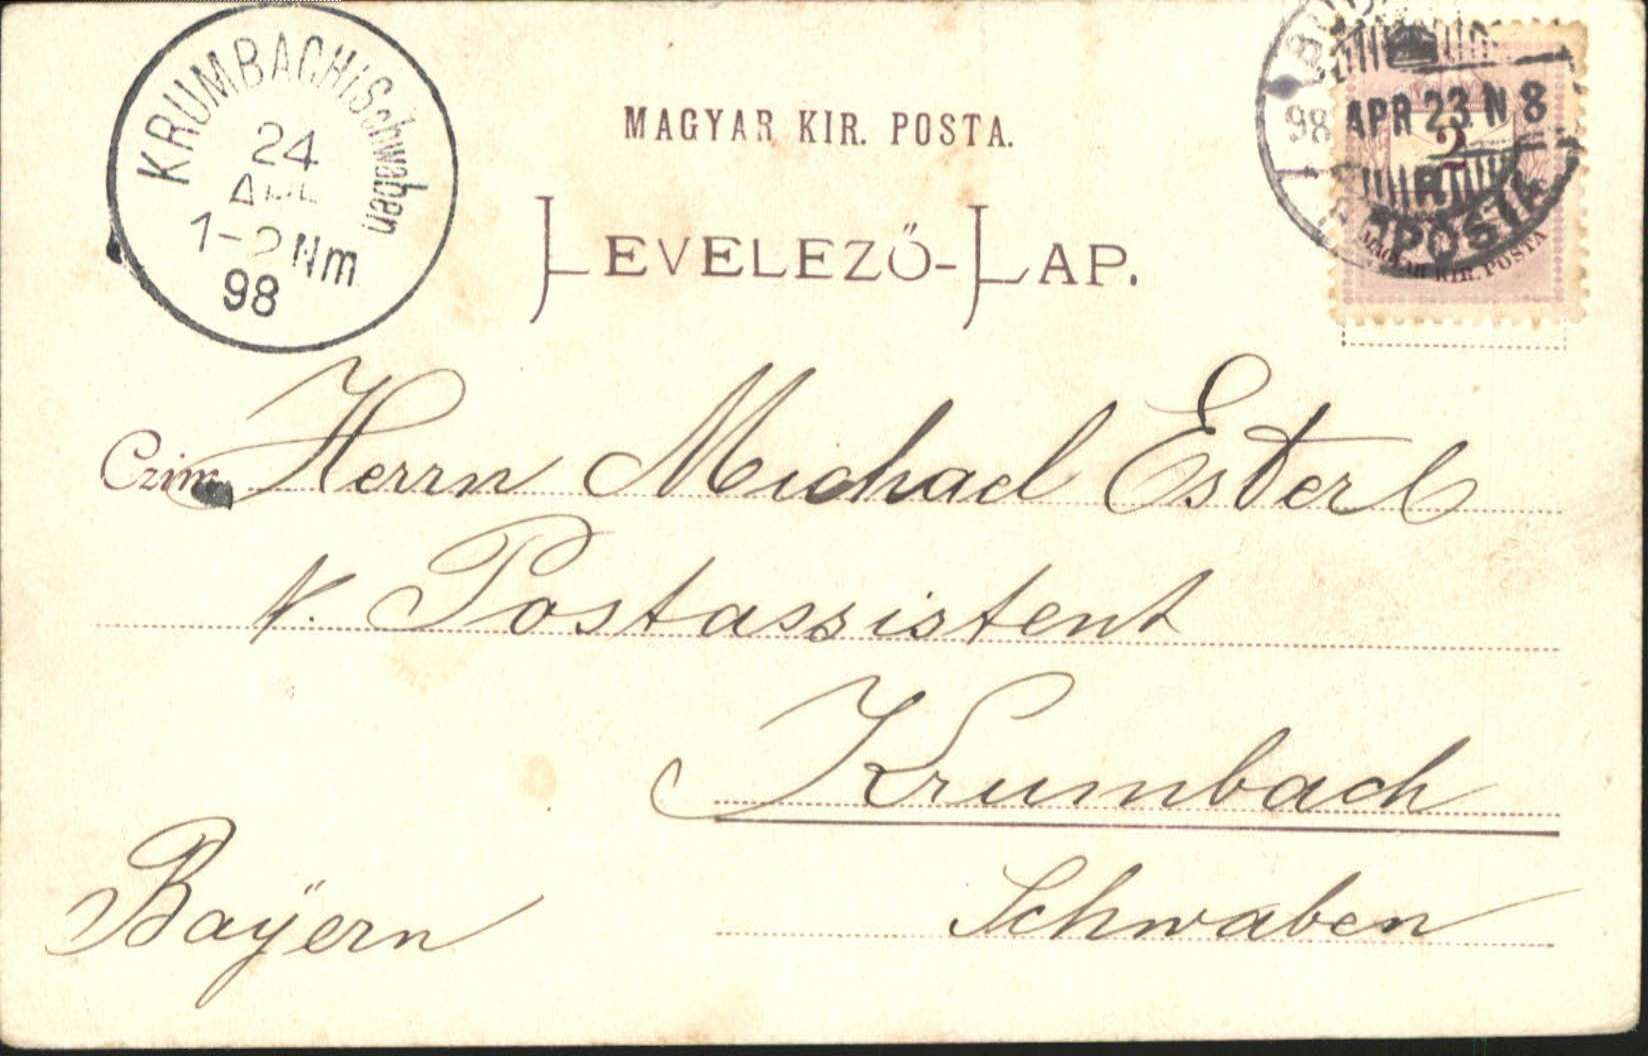 KRUMBACH i/Schwaben
24
1-2 Nm
98
MAGYAR KIR. POSTA.
LEVELEZŐ-LAP.
98 APR 23 N 8
2
POSTA
MAGYAR KIR. POSTA
Czim
Herrn Michael Esterl
k. Postassistent
Krumbach
Schwaben
Bayern